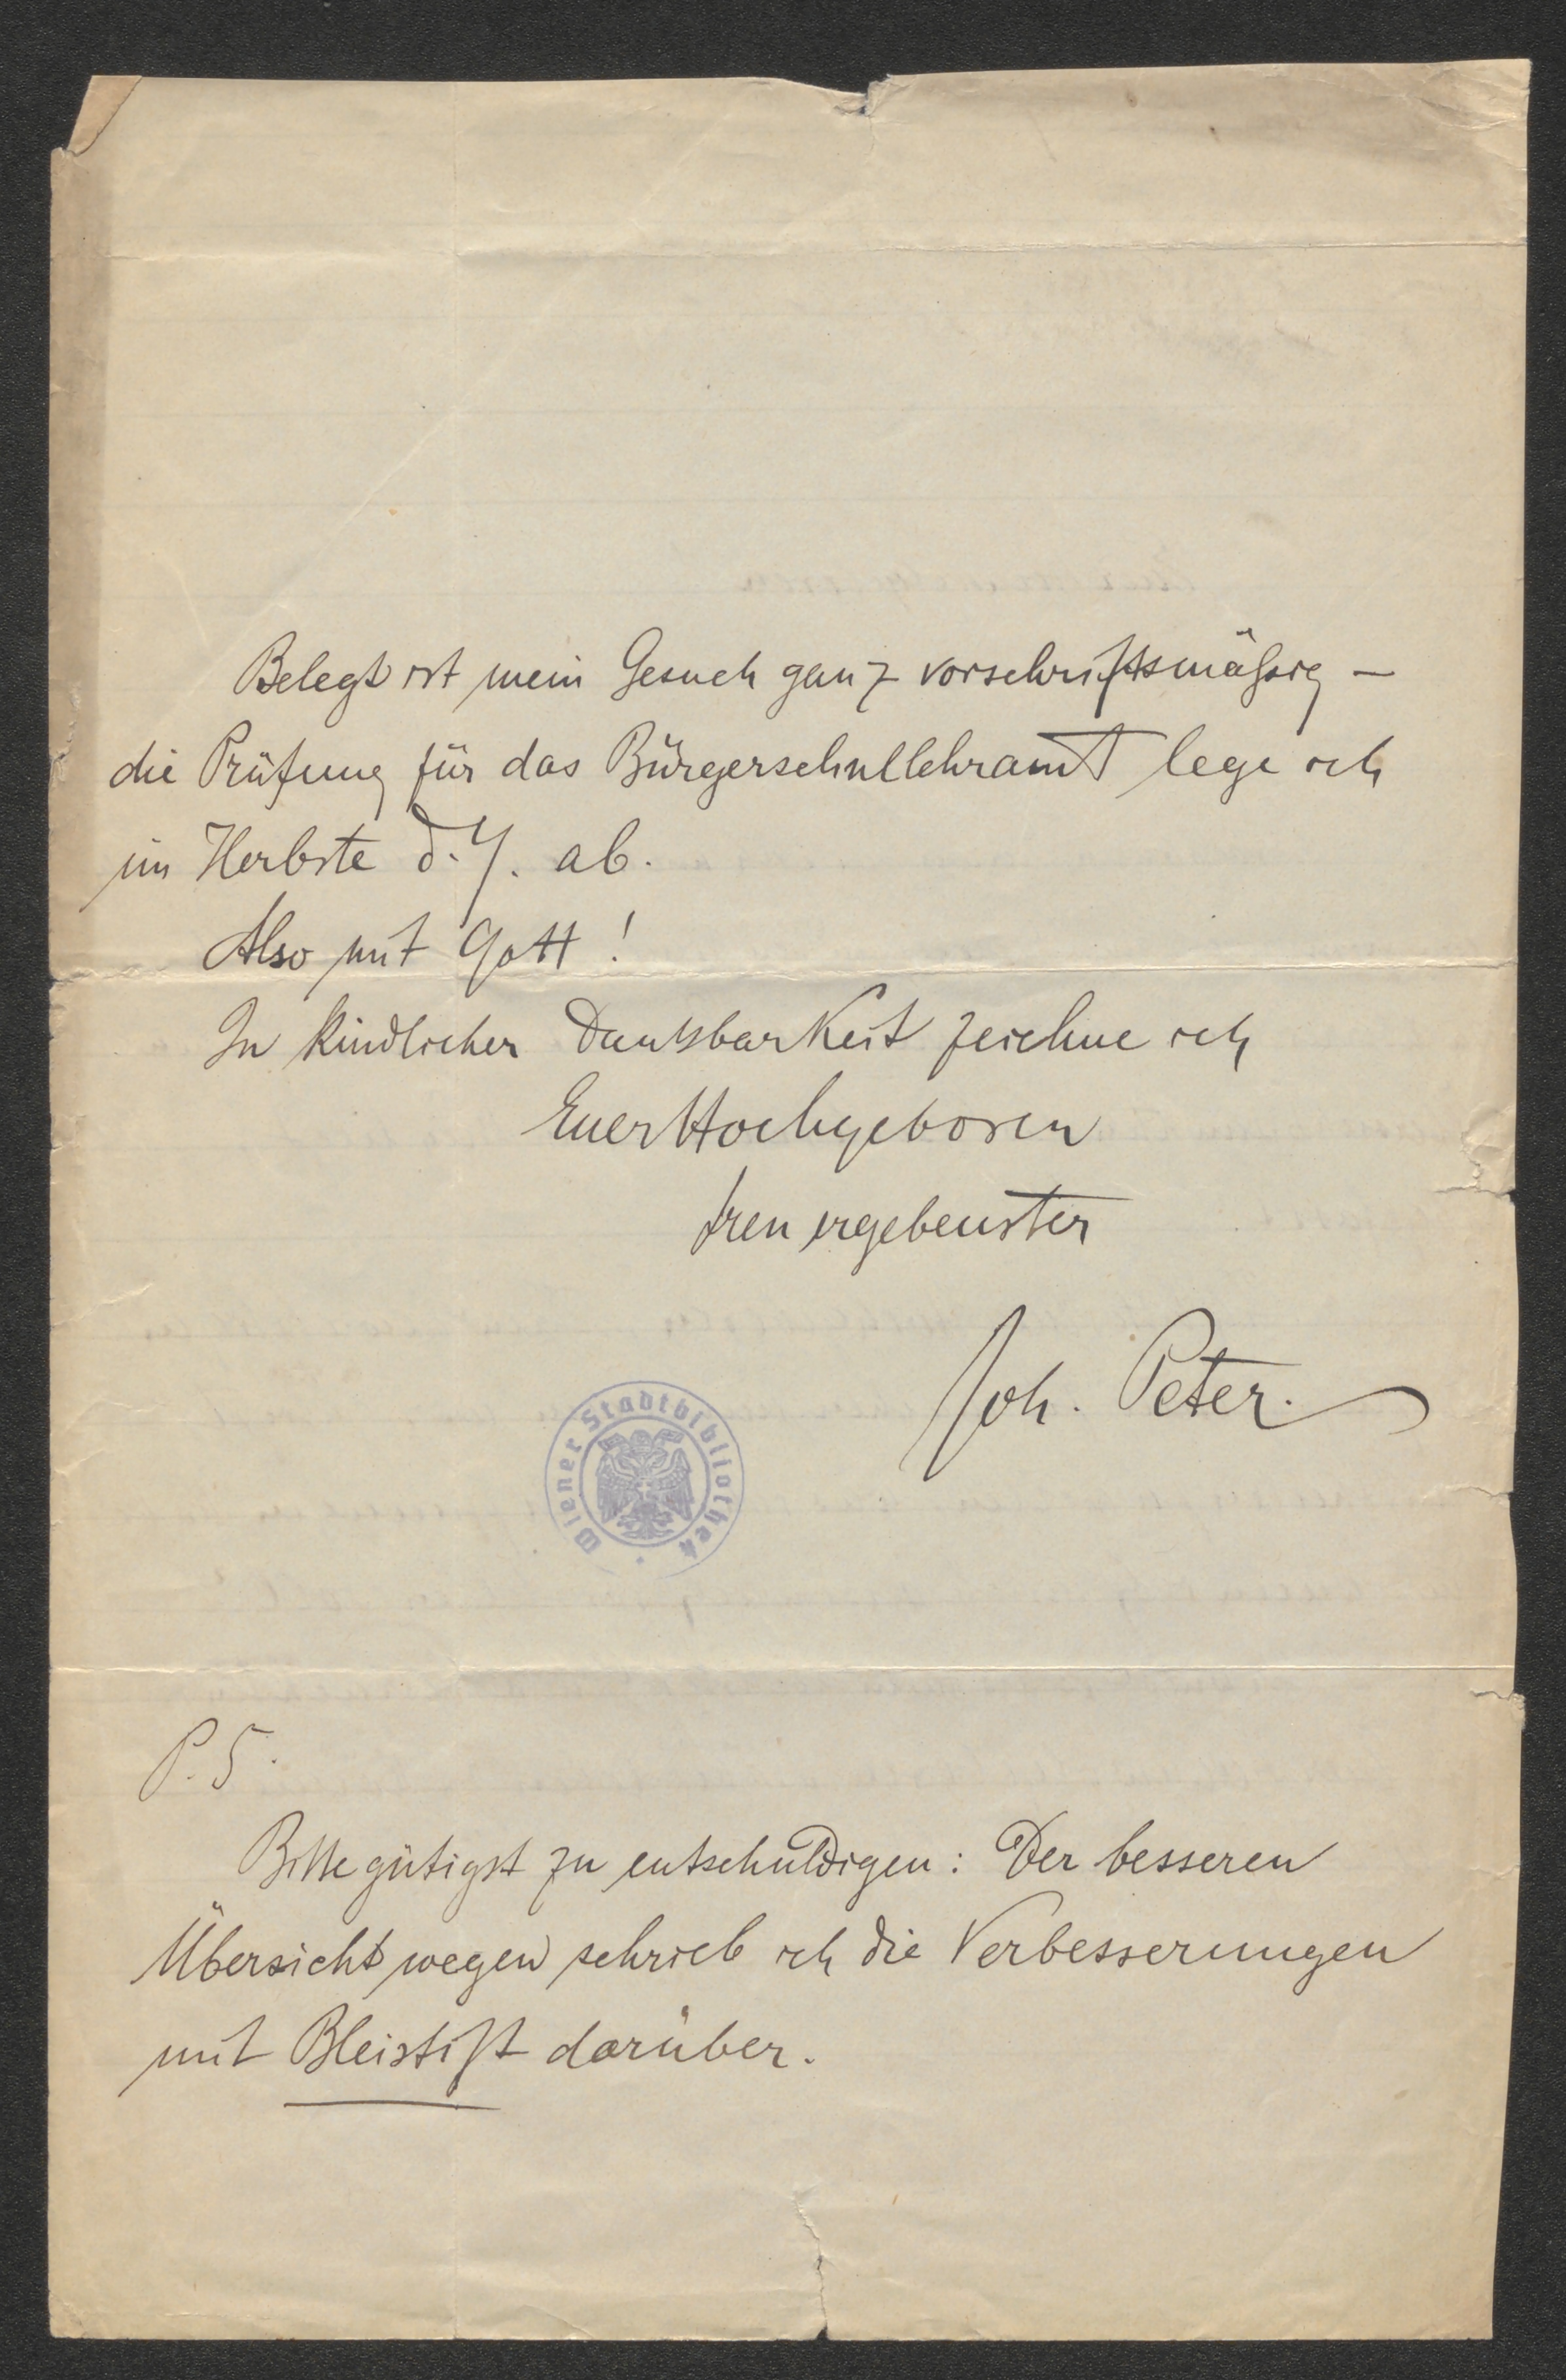 Belegt ist mein Gesuch ganz vorschriftsmäßig –
die Prüfung für das Bürgerschullehramt lege ich
im Herbste d. J. ab.
Also mit Gott!
In kindlicher Dankbarkeit zeichne ich
Euer Hochgeboren
treu ergebenster
Joh. Peter.
Wiener Stadtbibliothek
P. S.
Bitte gütigst zu entschuldigen: Der besseren
Übersicht wegen schrieb ich die Verbesserungen
mit Bleistift darüber.